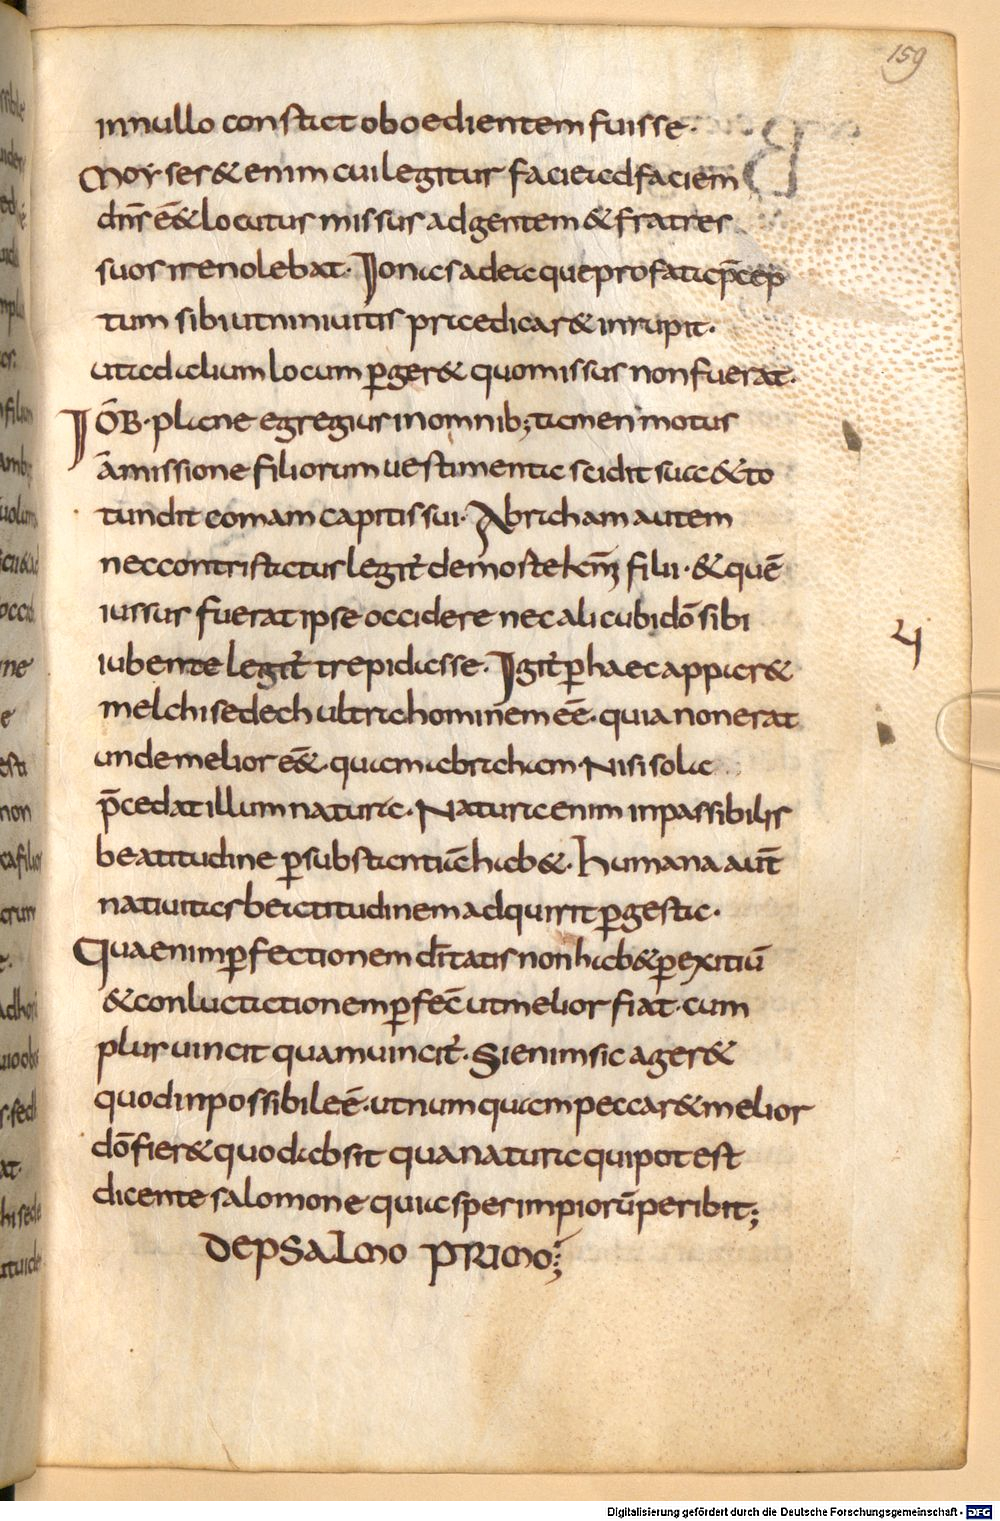 159
innullo constat oboedientem fuisse·
Moyses & enim cui legitur facie ad faciem
dn̄s ē& locutus missus ad gentem & fratres
suos ire nolebat· Ionas adaeque profatic p̄cep
tum sibi ut niniuitis praedicar& inrupit·
ut ad alium locum ꝑger& quo missus non fuerat·
IŌB· plane egregius in omnib; tamen motus
amissione filiorum uestimenta scidit sua & to
tundit comam capitis sui· Abraham autem
nec contristatus legit᷑ de morte km̄ filii· & quē
iussus fuerat ipse occidere nec alicubi dō sibi
iubente legit᷑ trepidasse· Igit᷑ ꝑ haec appar&
melchisedech ultra hominem eē· quia non erat
unde melior ē& quam abraham· Nisi sola
p̄cedat illum natura· Natura enim inpassibilis
beatitudinē ꝑ substantiā hab&· humana aut̄
natiuitas beatitudinem adquirit ꝑ gesta·
Qua enim ꝑfectionem d̄itatis non hab& ꝑ exitiū
& conluctationem ꝑfec̄ ut melior fiat· cum
plus uincit quam uincit᷑· Si enim sic ager&
quod inpossibile ē· ut numquam peccar& melior
dō fier& quod absit qua natura qui potest
dicente salomone quia spes impiorū peribit;
DE PSALMO PRIMO;
Digitalisierung gefördert durch die Deutsche Forschungsgemeinschaft - DFG